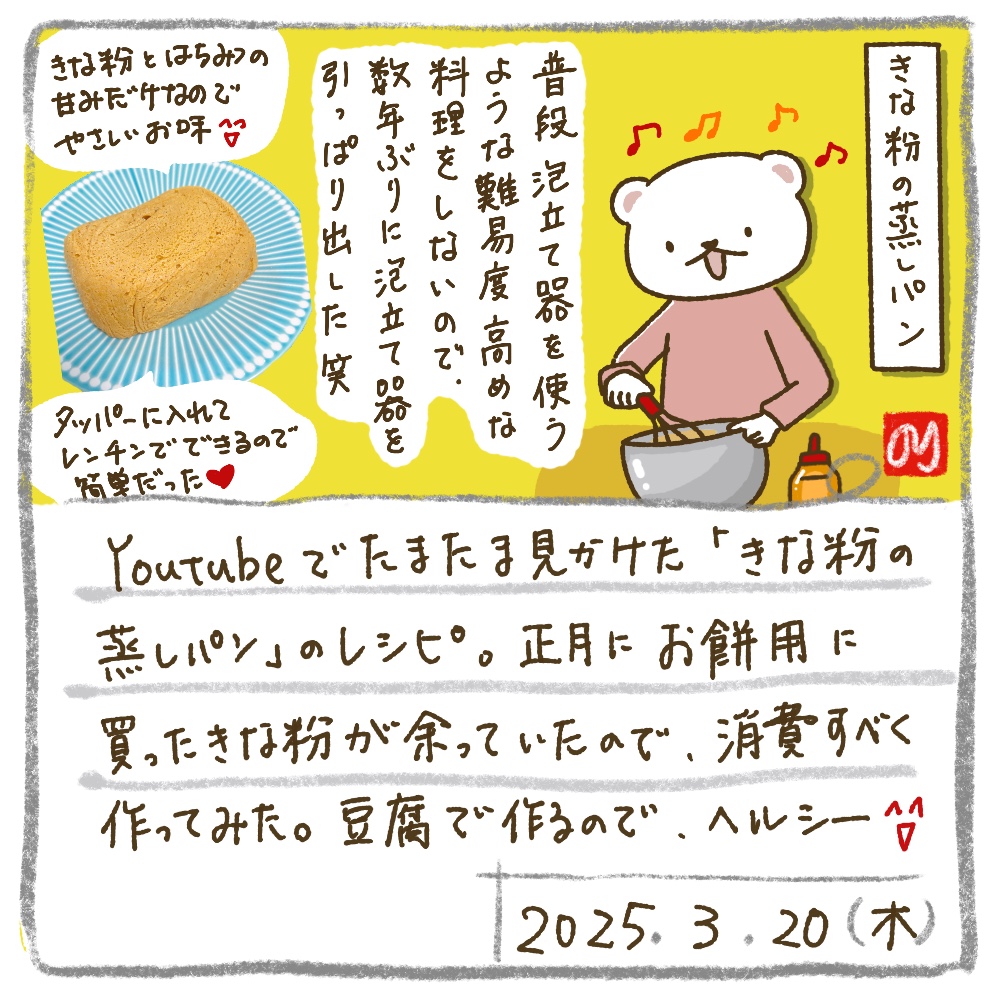 きな粉の蒸しパン
普段泡立て器を使う
ような難易度高めな
料理をしないので、
数年ぶりに泡立て器を
引っぱり出した笑
きな粉とはちみつの
甘みだけなので
やさしいお味
タッパーに入れて
レンチンでできるので
簡単だった
のり
Youtubeでたまたま見かけた「きな粉の
蒸しパン」のレシピ。正月にお餅用に
買ったきな粉が余っていたので、消費すべく
作ってみた。豆腐で作るので、ヘルシー
2025.3.20(木)